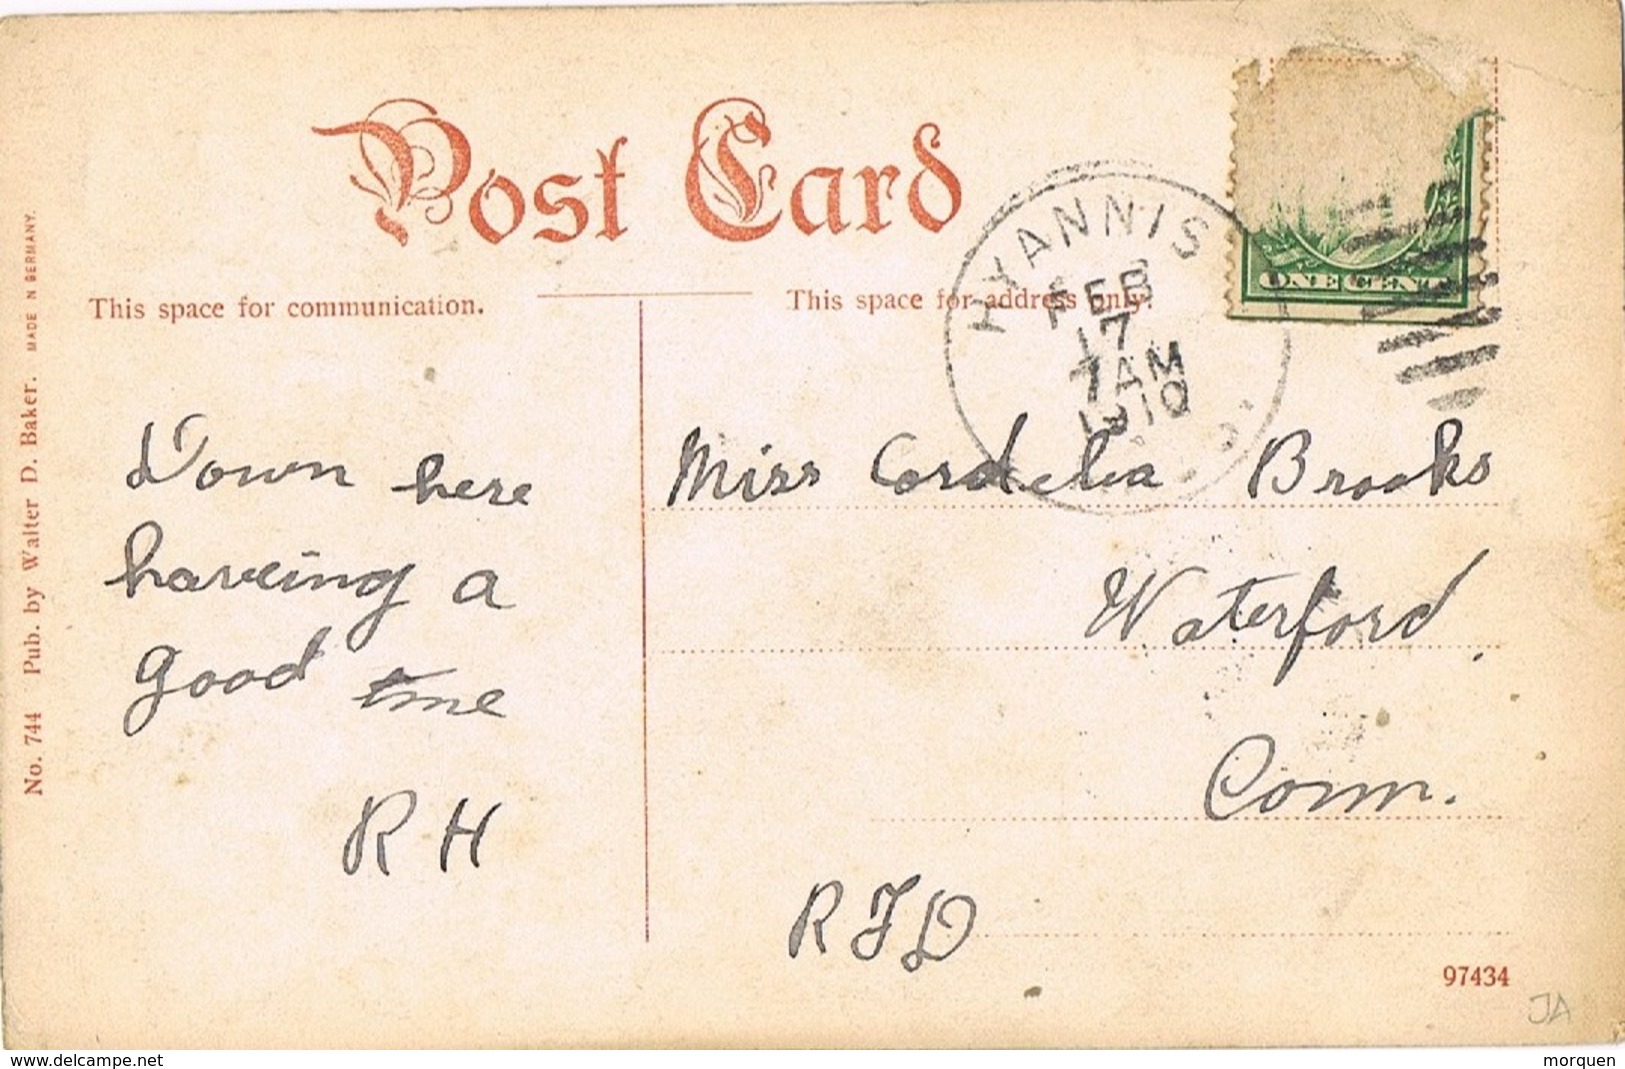 Post Card
This space for communication.
This space for address only.
HYANNIS
FEB
17
7 AM
1910
ONE CENT
Down here
haveing a
good time
R H
Miss Cordelia Brooks
Waterford
Conn.
R F D
No. 744 Pub. by Walter D. Baker. MADE N GERMANY.
97434
JA
www.delcampe.net
morquen